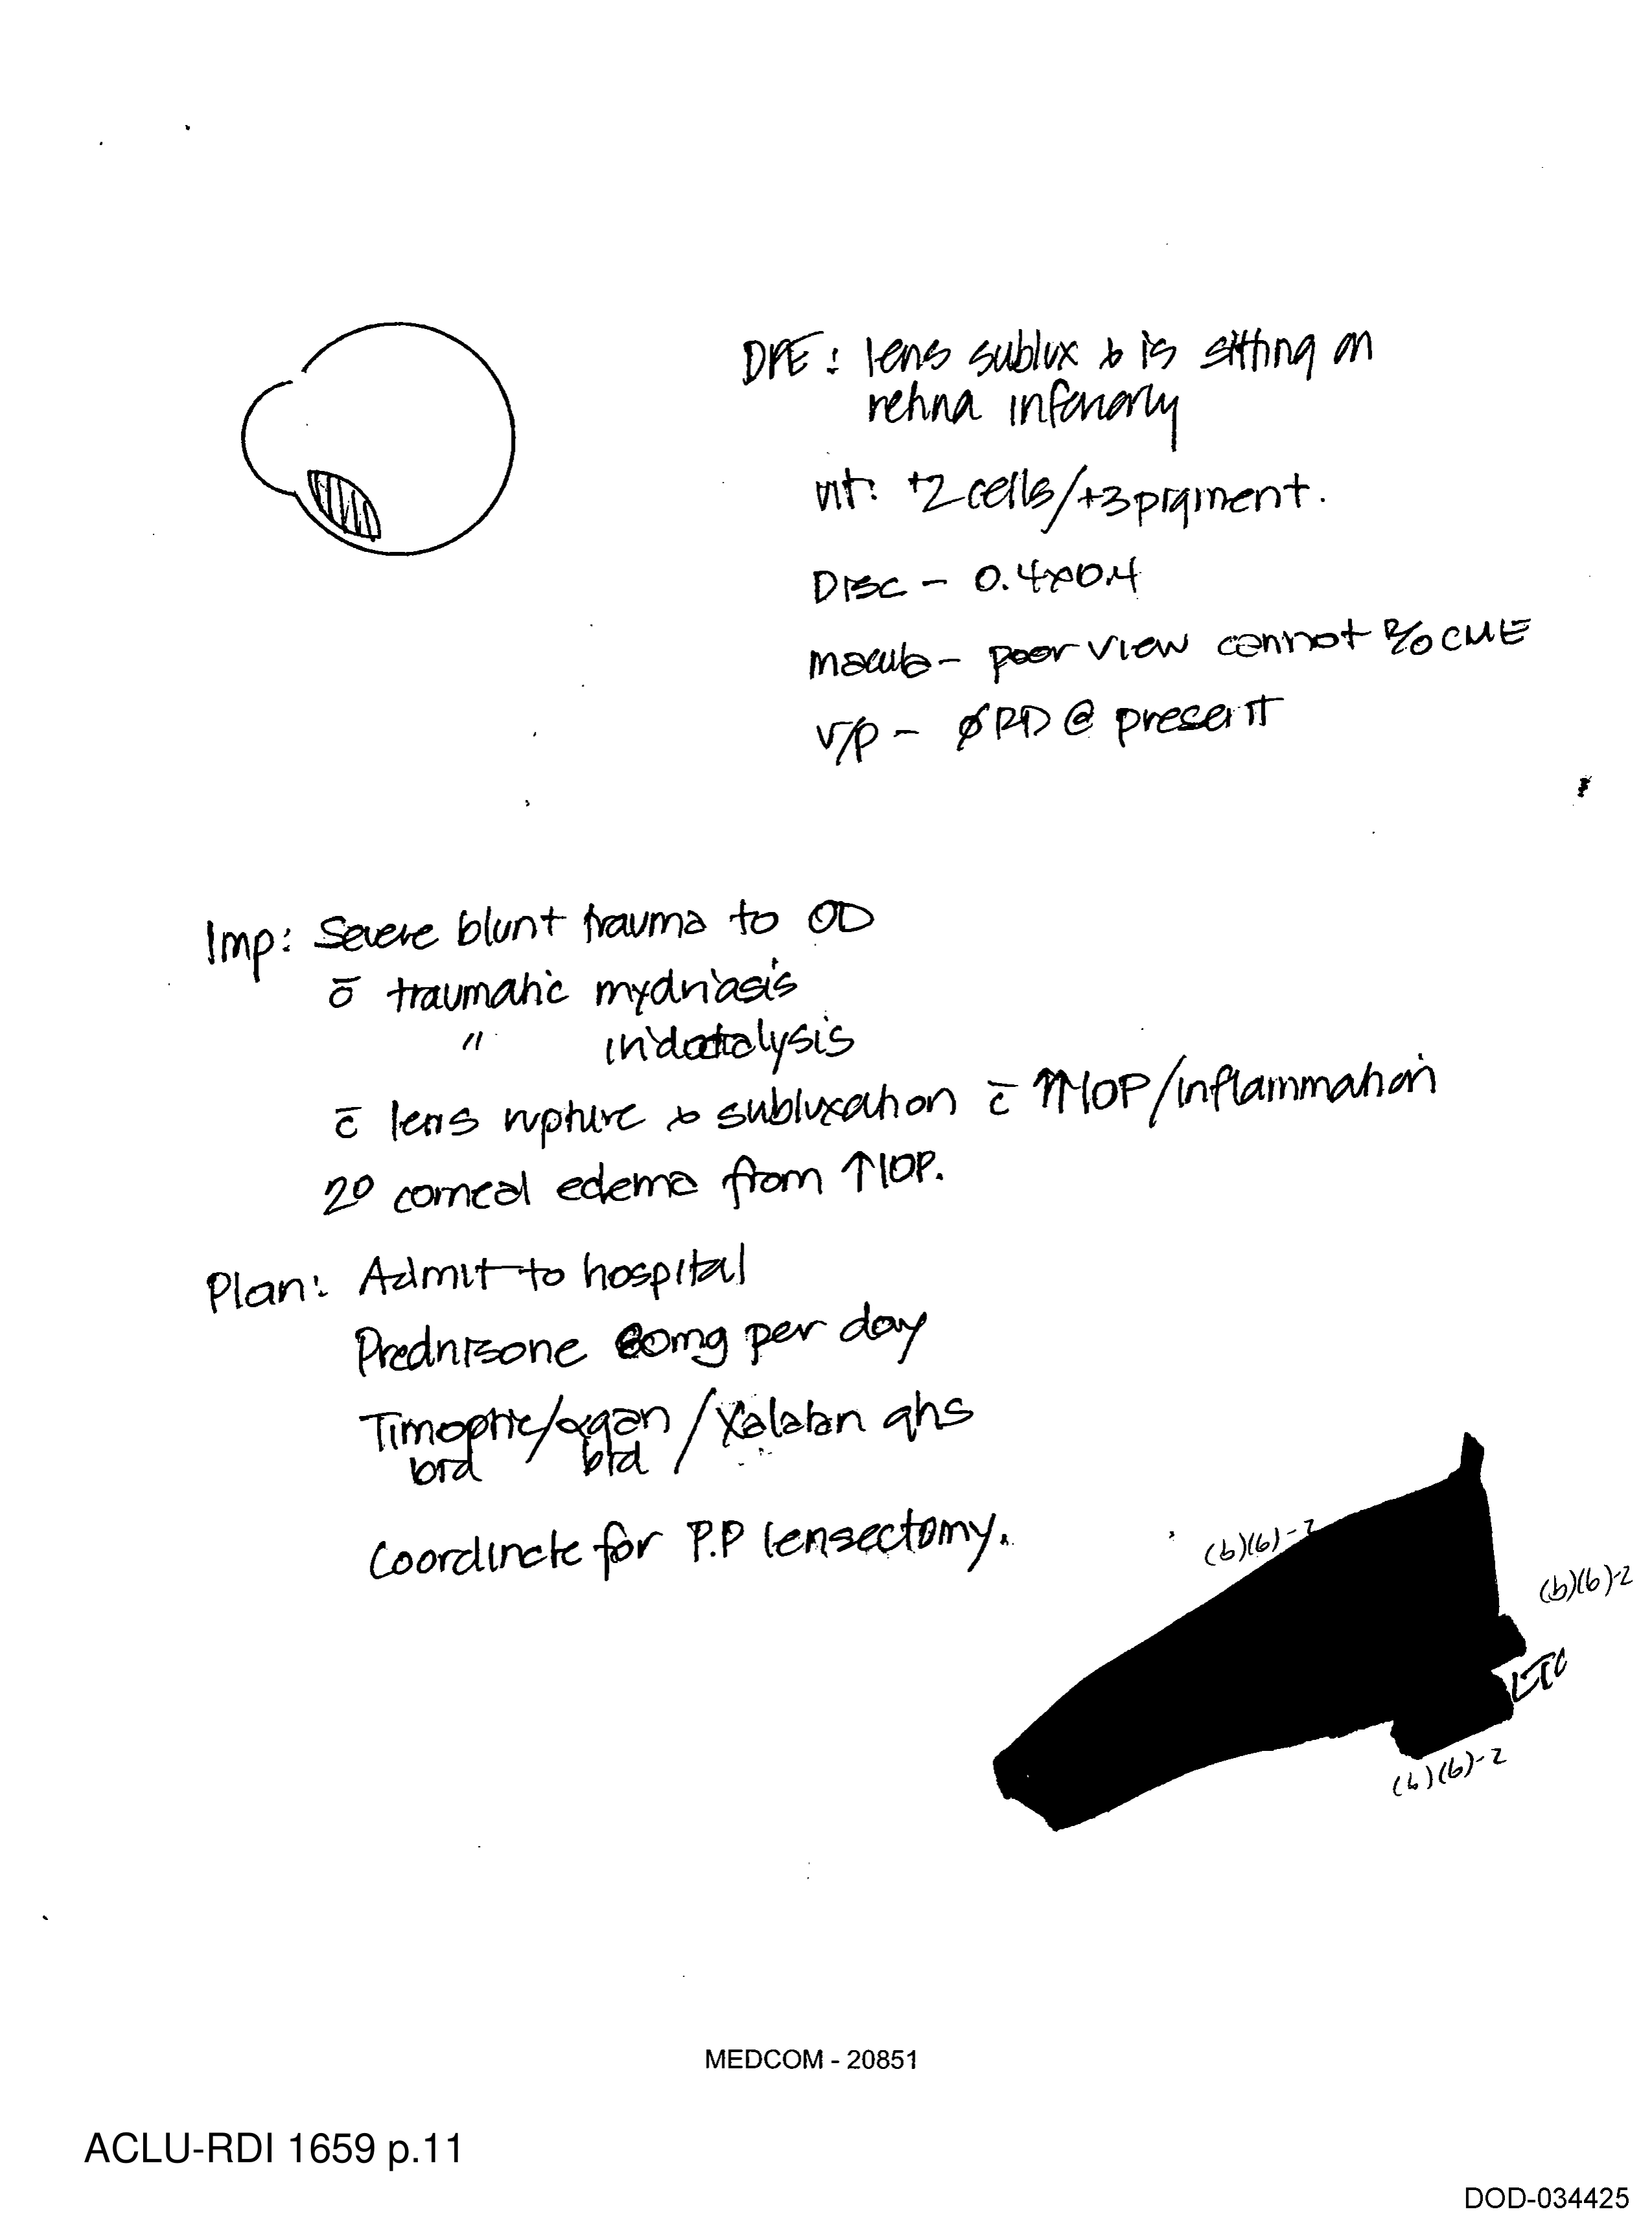 DFE: lens sublux & is sitting on
retina inferiorly
vit: +2 cells/+3 pigment.
Disc - 0.4x0.4
macula - poor view cannot R/o CME
v/p - ∅ RD @ present
Imp: Severe blunt trauma to OD
c̄ traumatic mydriasis
" iridodialysis
c̄ lens rupture & subluxation c̄ ↑↑IOP/inflammation
2° corneal edema from ↑IOP.
Plan: Admit to hospital
Prednisone 60mg per day
Timoptic/alphagan/Xalatan qhs
bid bid
Coordinate for P.P lensectomy.
(b)(6)-2
(b)(6)-2
LTC
(b)(6)-2
MEDCOM - 20851
ACLU-RDI 1659 p.11
DOD-034425